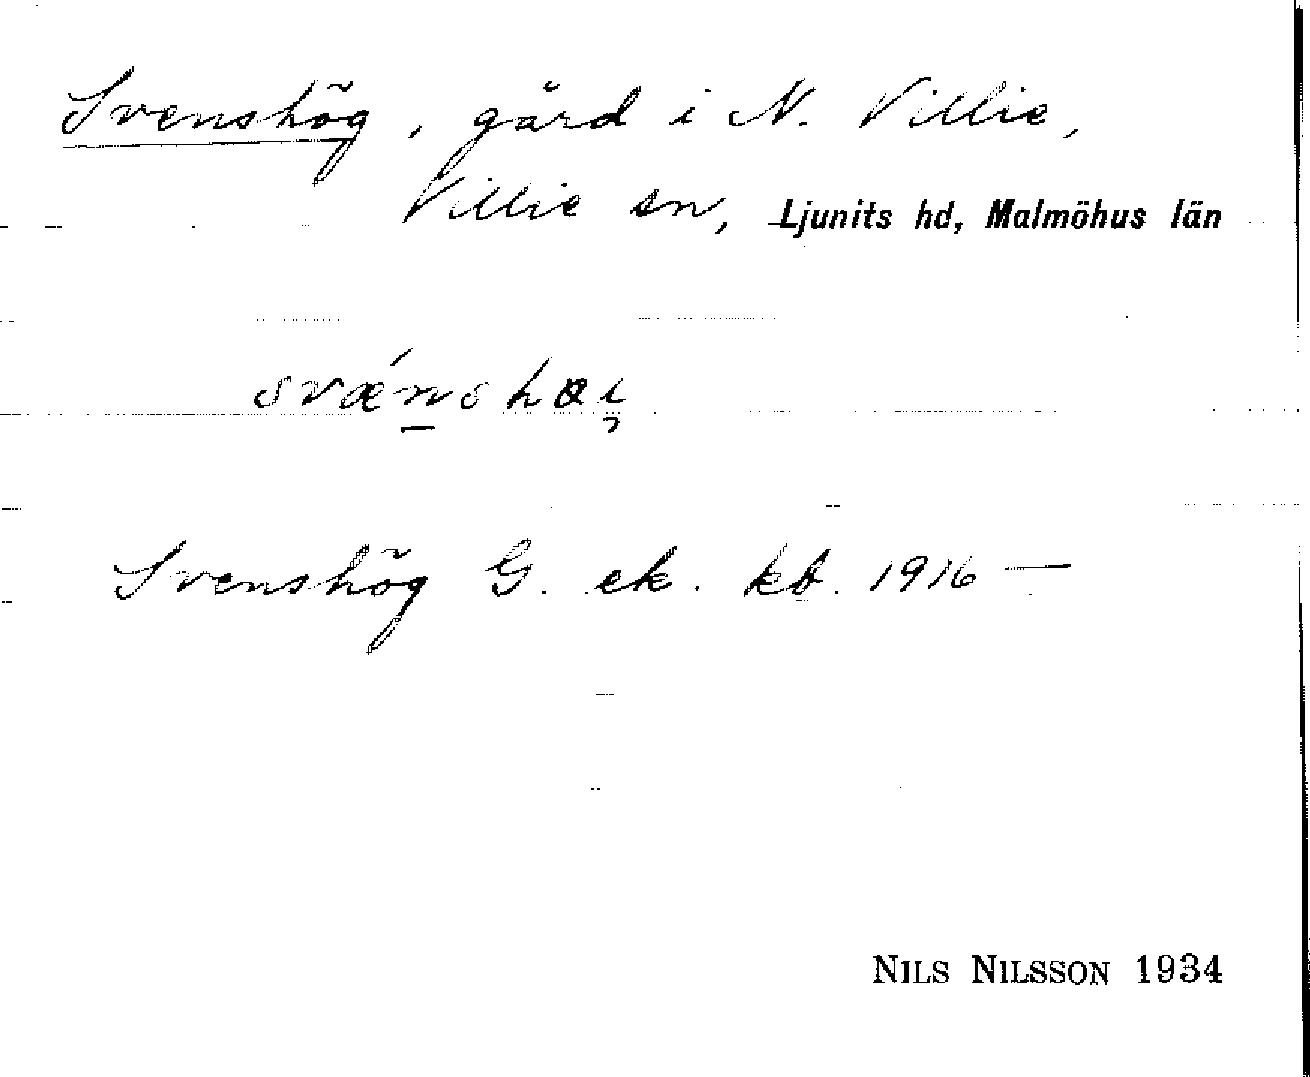 Svenshög, gård i N. Villie,
Villie sn, Ljunits hd, Malmöhus län
svǽn̲shöi̯
Svenshög G. ek. kb. 1916 —
NILS NILSSON 1934